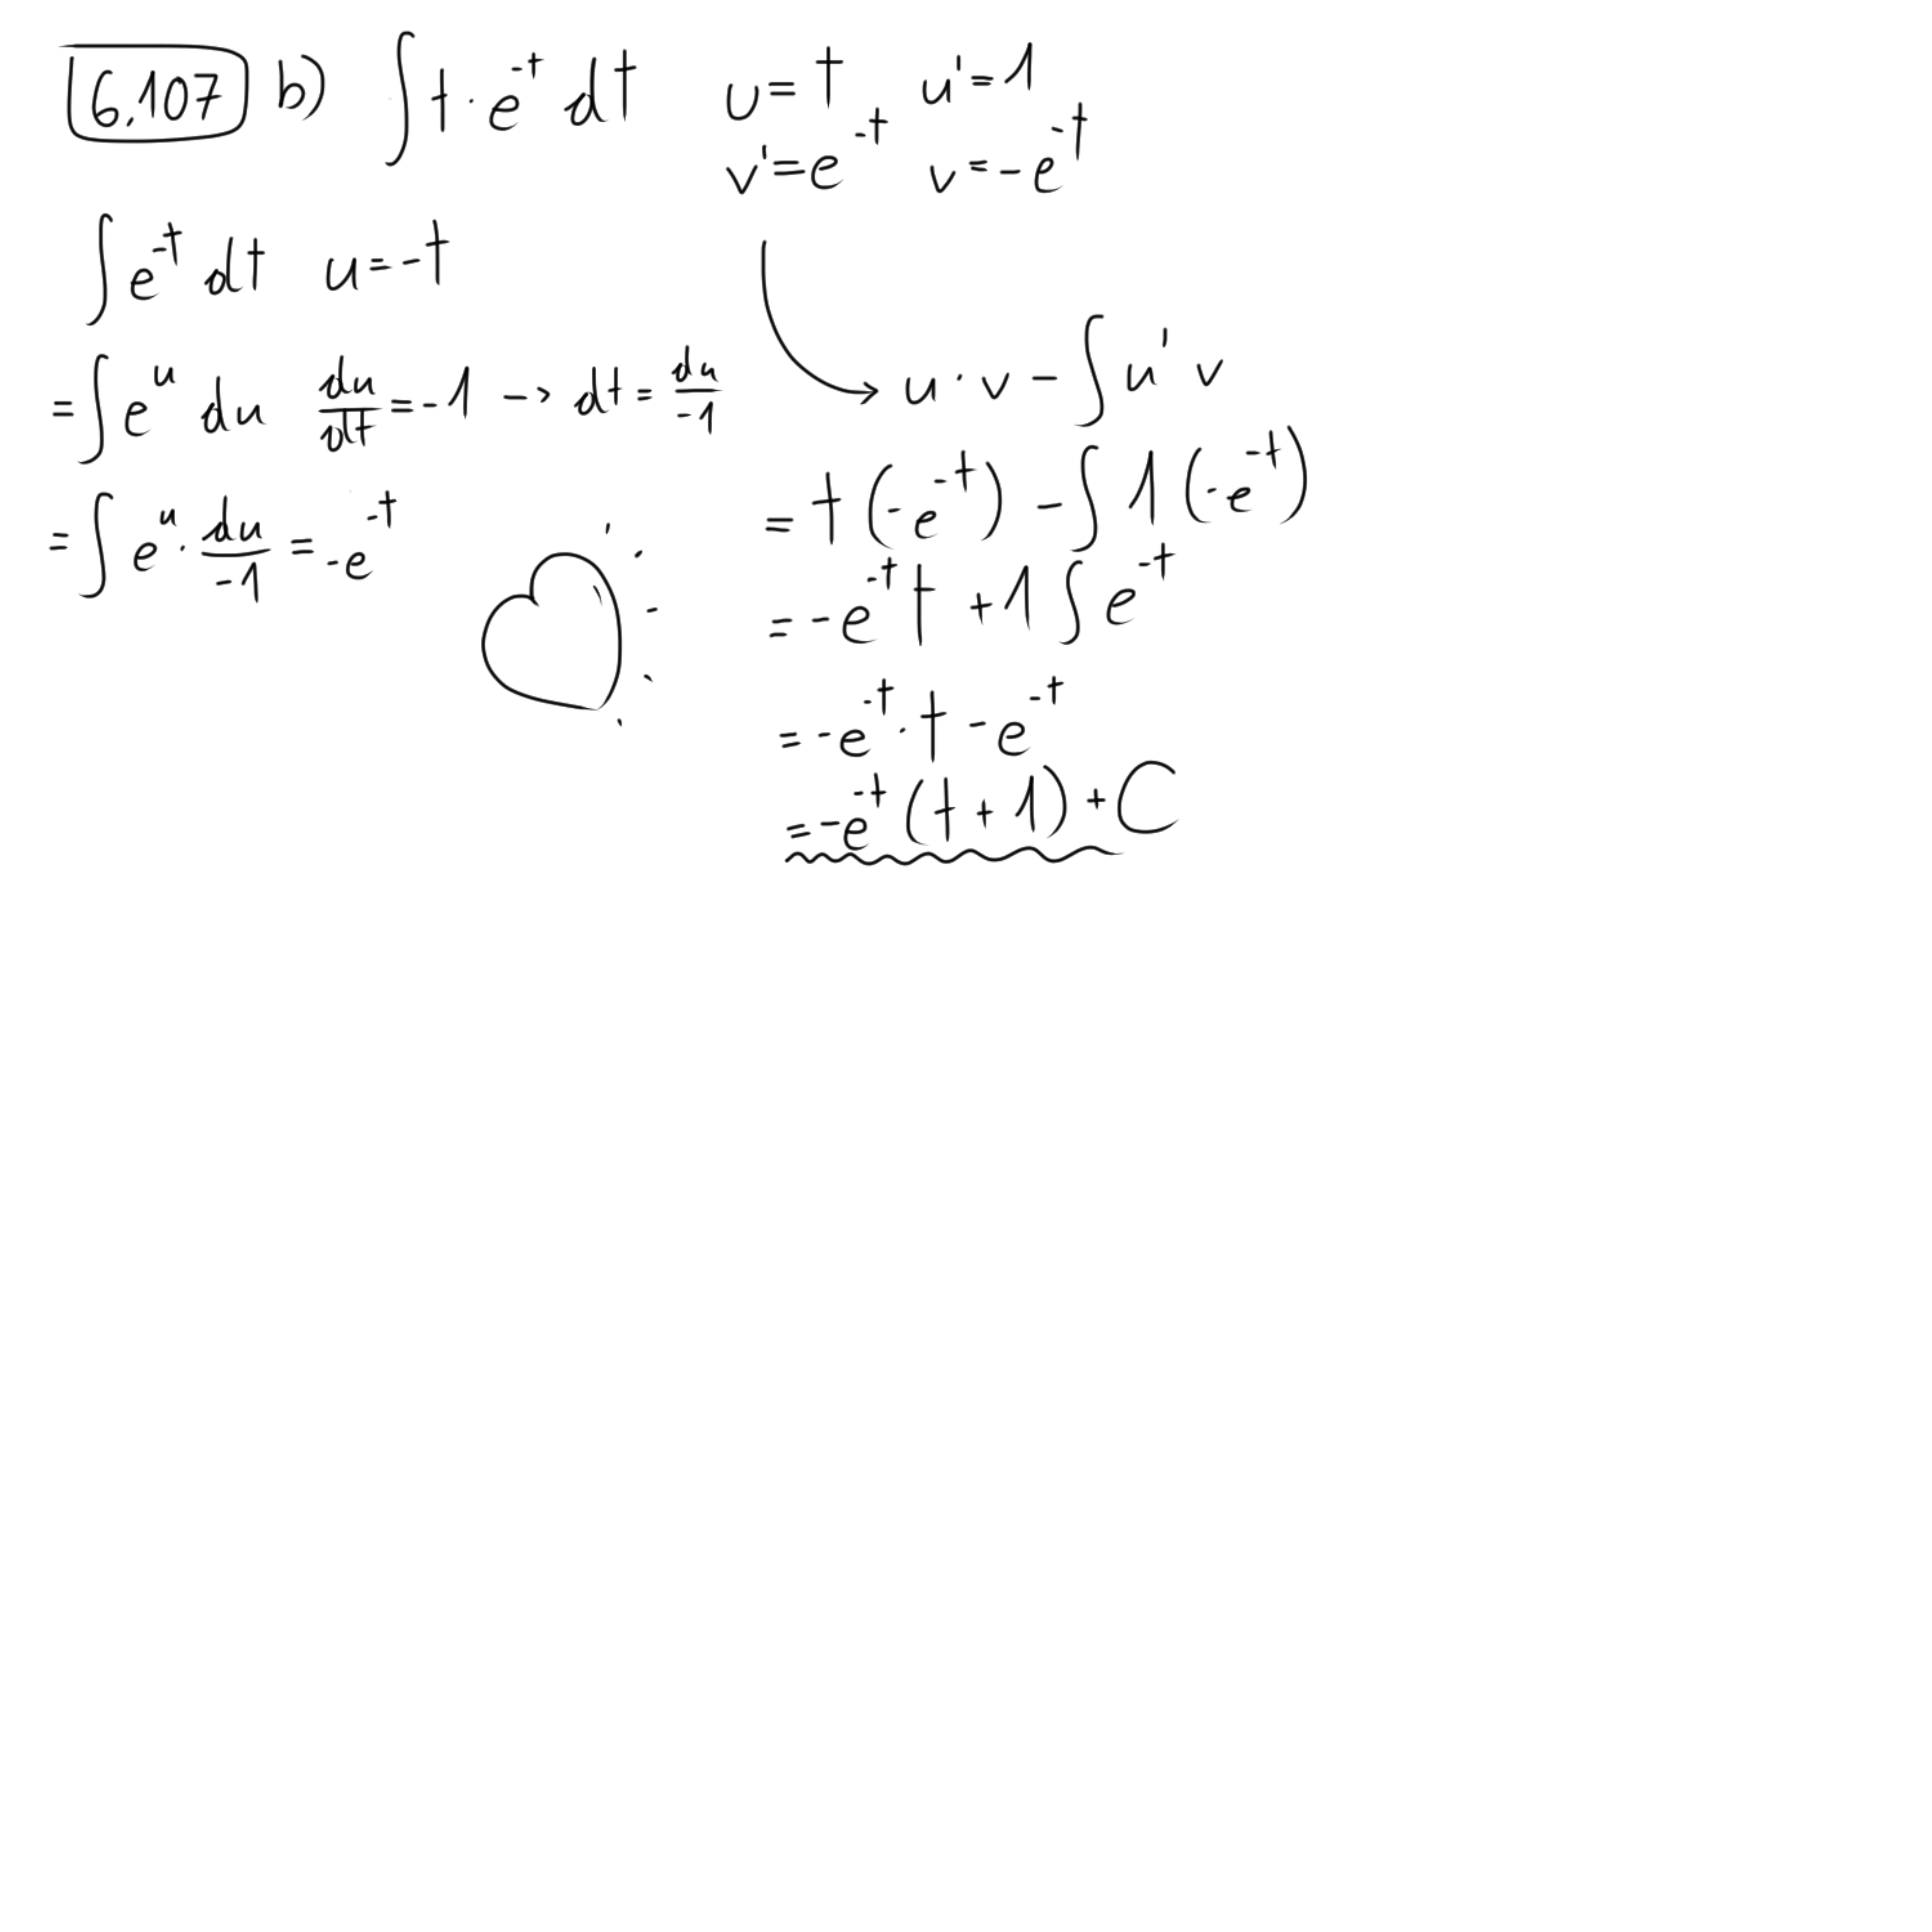 6.107 b) ∫ t · e^-t dt u = t u' = 1
v' = e^-t v = -e^-t
∫ e^-t dt u = -t
= ∫ e^u du du/dt = -1 -> dt = du/-1
= ∫ e^u · du/-1 = -e^-t
→ u · v - ∫ u' v
= t (-e^-t) - ∫ 1 (-e^-t)
= -e^-t t + 1 ∫ e^-t
= -e^-t · t - e^-t
= -e^-t (t + 1) + C